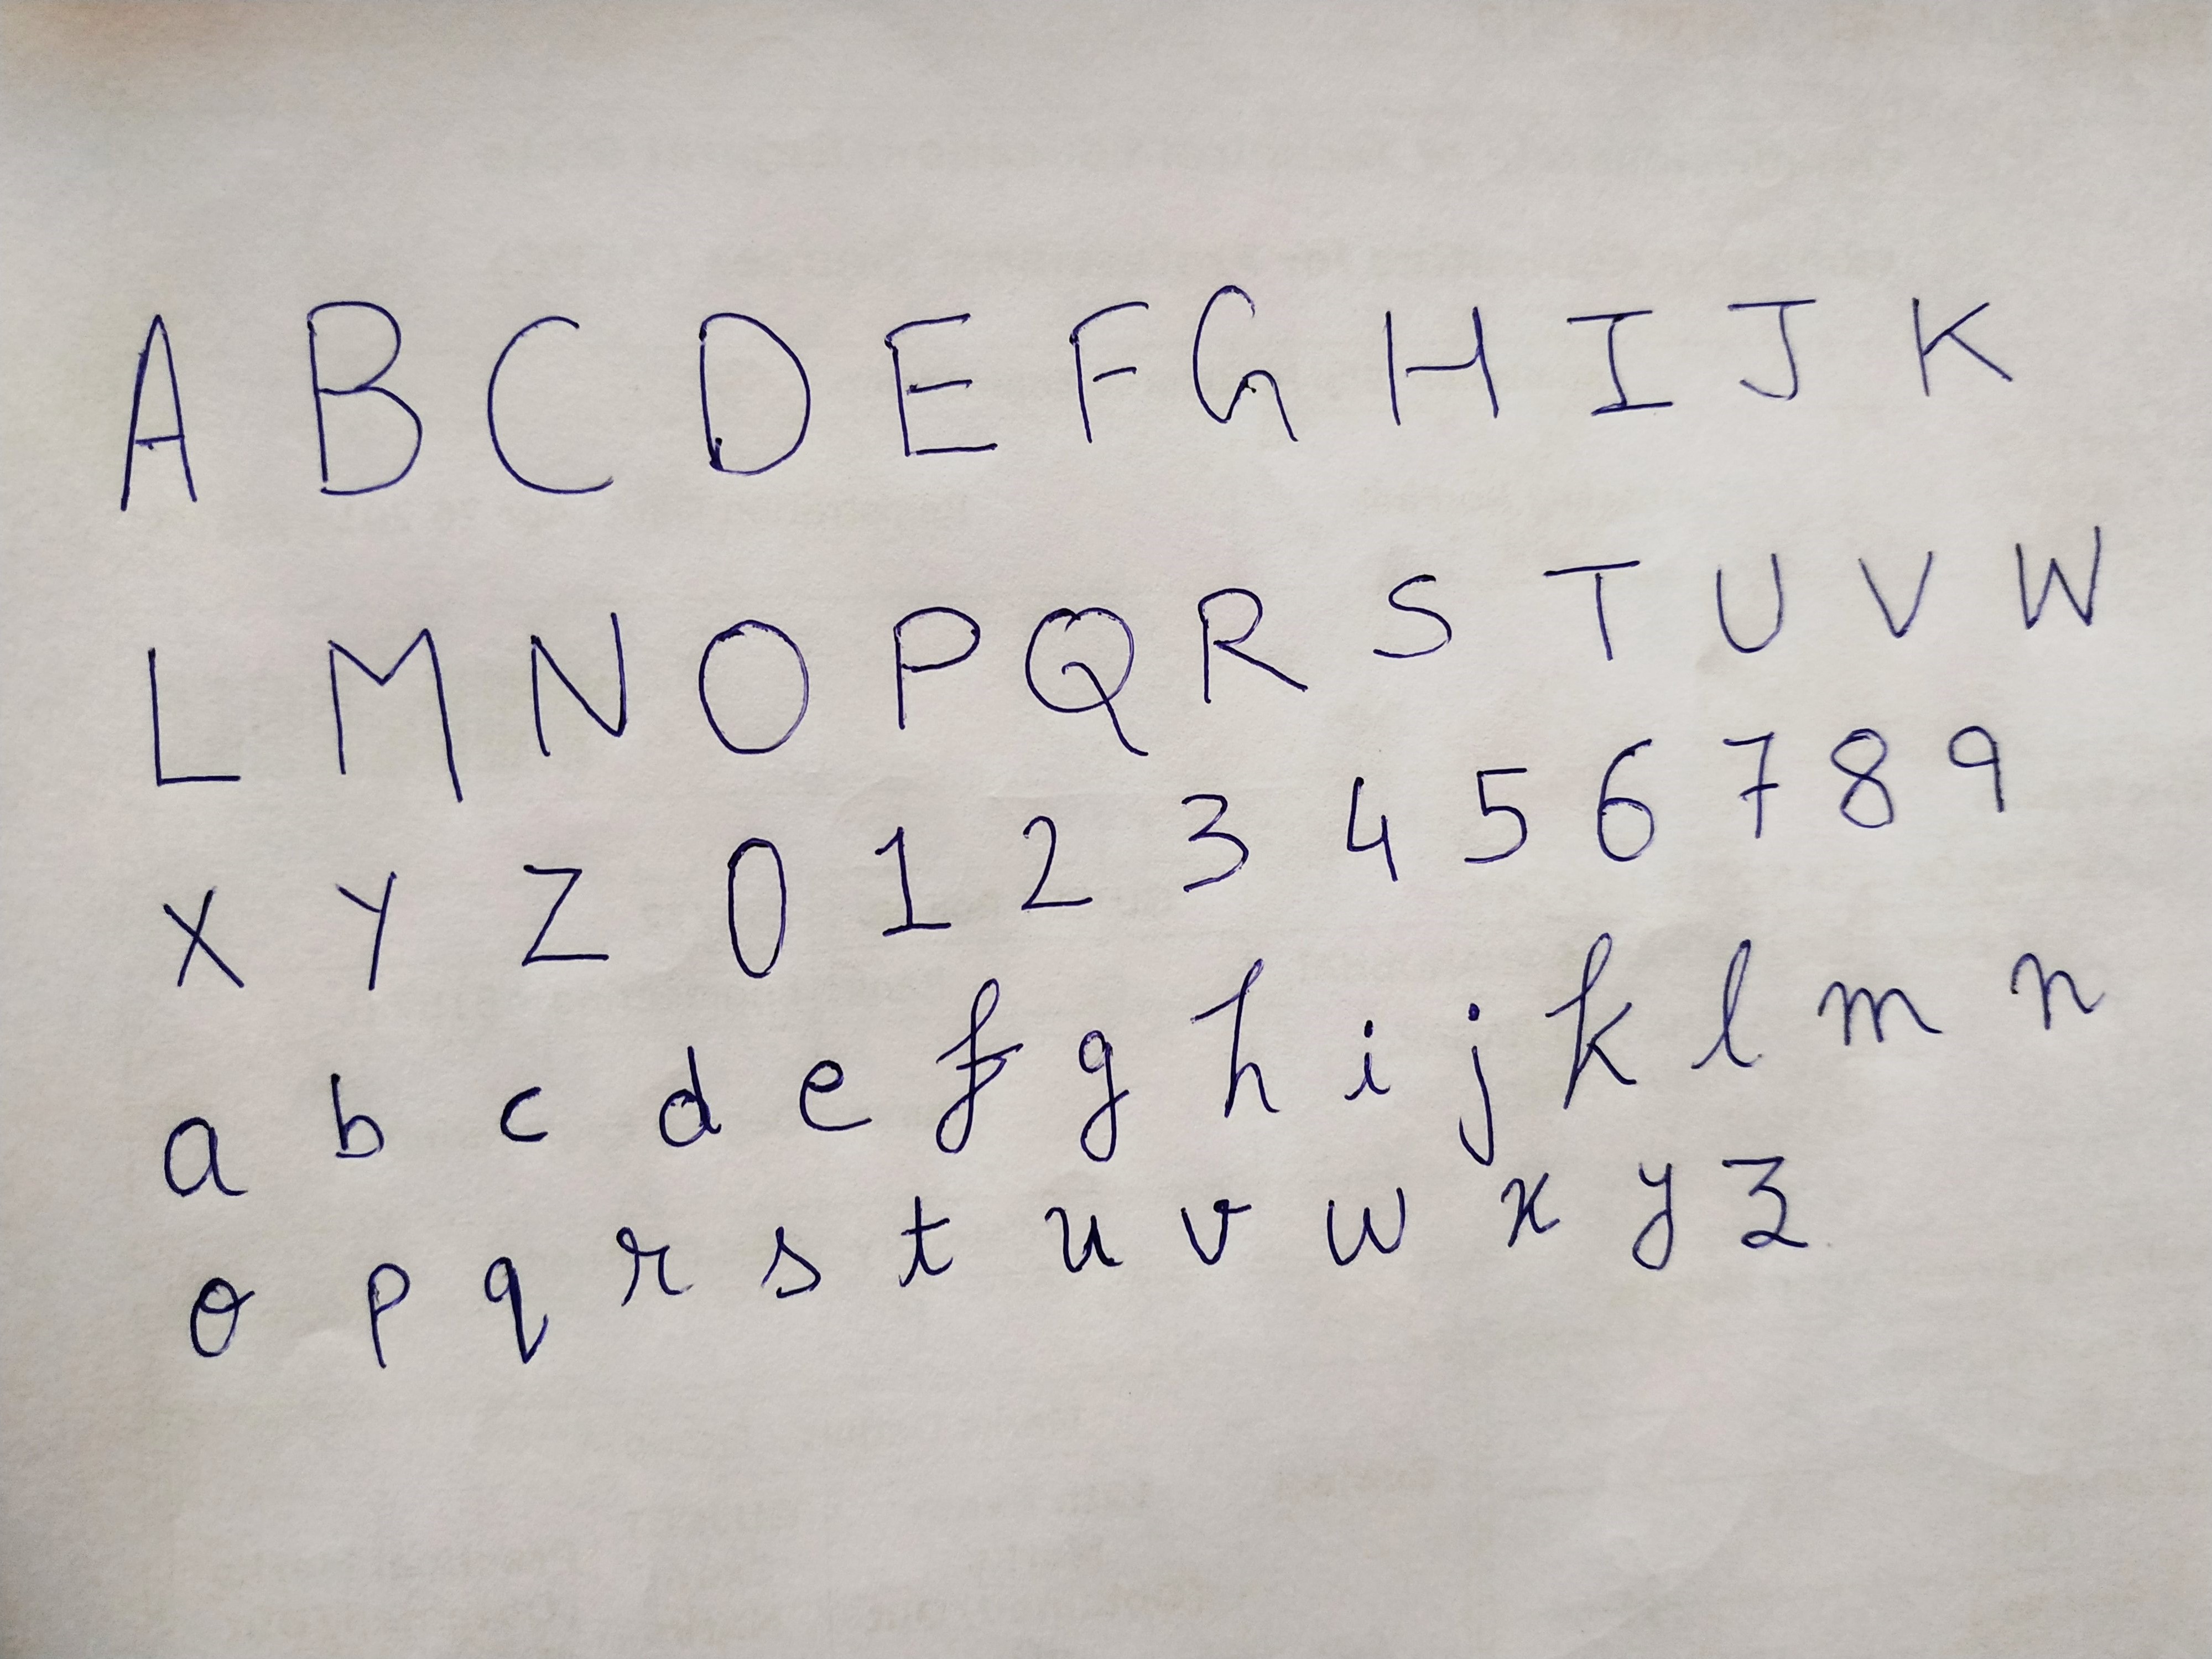 A B C D E F G H I J K
L M N O P Q R S T U V W
X Y Z 0 1 2 3 4 5 6 7 8 9
a b c d e f g h i j k l m n
o p q r s t u v w x y z